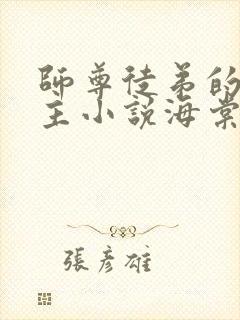 師尊徒弟的
主小說海棠
張彥雄